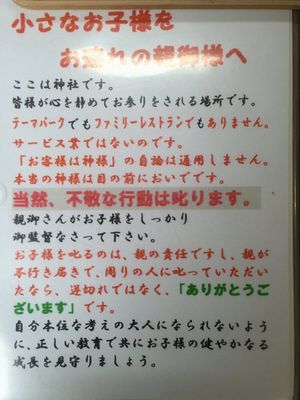 小さなお子様を
お連れの親御様へ
ここは神社です。
皆様が心を静めてお参りをされる場所です。
テーマパークでもファミリーレストランでもありません。
サービス業ではないのです。
「お客様は神様」の自論は通用しません。
本当の神様は目の前においでです。
当然、不敬な行動は叱ります。
親御さんがお子様をしっかり
御監督なさって下さい。
お子様を叱るのは、親の責任ですし、親が
不行き届きで、周りの人に叱っていただい
たなら、逆切れではなく、「ありがとうご
ざいます」です。
自分本位な考えの大人になられないよう
に、正しい教育で共にお子様の健やかなる
成長を見守りましょう。